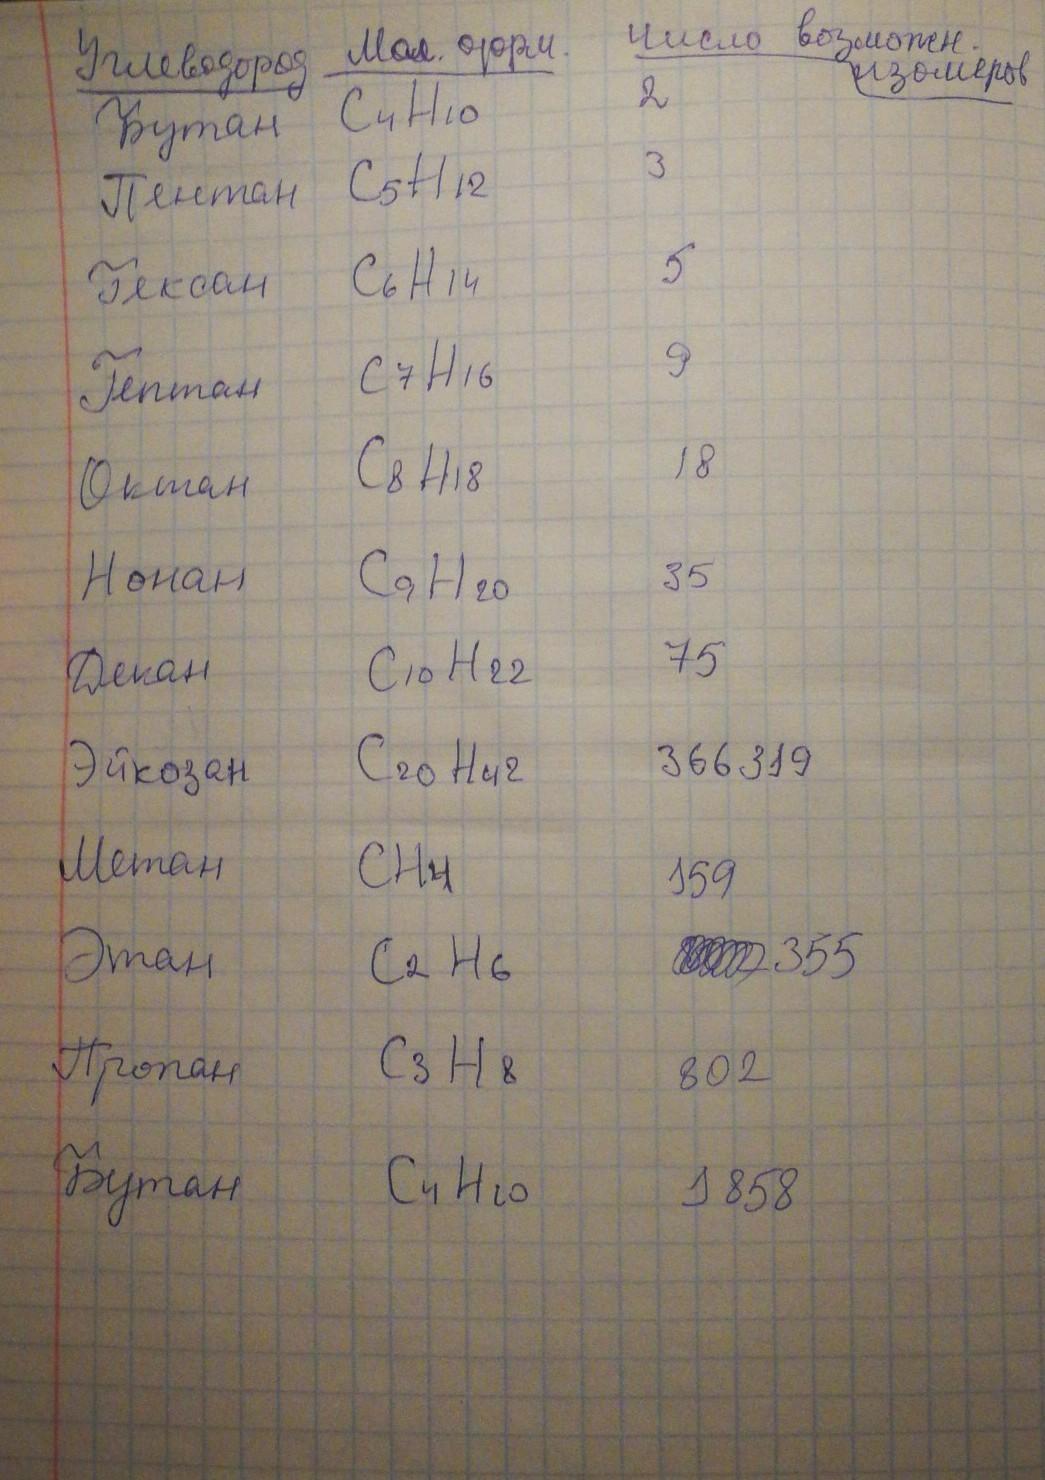 Углеводород Мол. форм. число возможн.
изомеров
Бутан C4H10 2
Пентан C5H12 3
Гексан C6H14 5
Гептан C7H16 9
Октан C8H18 18
Нонан C9H20 35
Декан C10H22 75
Эйкозан C20H42 366319
Метан CH4 159
Этан C2H6 355
Пропан C3H8 802
Бутан C4H10 1858